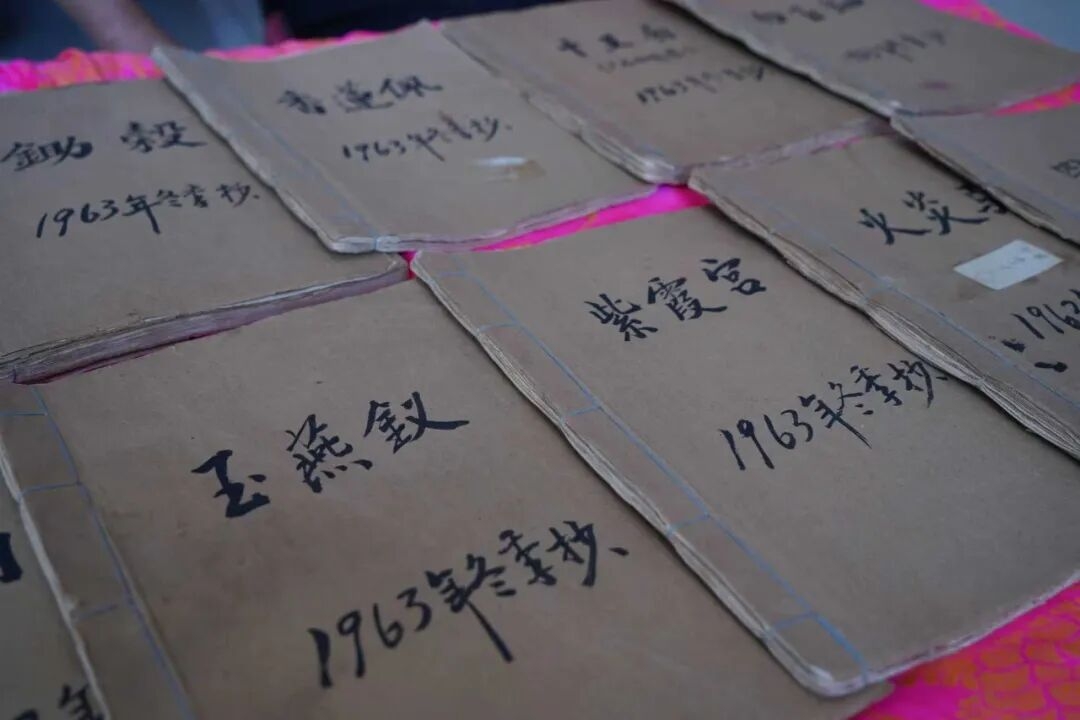 鋤穀
1963年冬季抄.
香蓮佩
1963年冬季抄.
1963年冬季抄
火炎
玉燕釵
1963年冬季抄、
紫霞宫
1963年冬季抄、